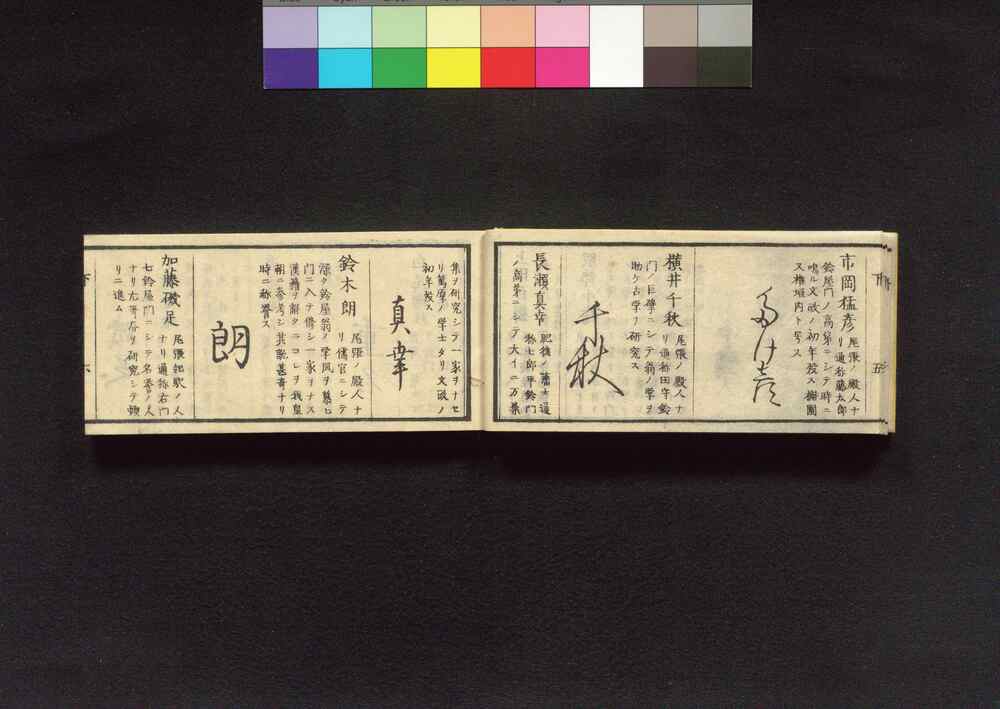 市岡猛彦 尾張ノ殿人ナ
リ通称藤太郎
鈴屋門ノ高弟ニシテ時ニ
鳴ル文政ノ初年歿ス樹園
又椎垣内ト号ス
たけ彦
横井千秋 尾張ノ殿人ナ
リ通称田守鈴
門ノ巨擘ニシテ翁ノ学ヲ
助ケ古学ノ研究ス
千秋
長瀬真幸 肥後ノ藩士通
称七郎平鈴門
ノ高弟ニシテ大イニ万葉
集ヲ研究シテ一家ヲナセ
リ篤厚ノ学士タリ文政ノ
初年歿ス
真幸
鈴木朗 尾張ノ殿人ナ
リ儒官ニシテ
深ク鈴屋翁ノ学風ヲ慕ヒ
門ニ入テ倚シ一家ヲナス
漢籍ヲ解クニコレヲ我皇
朝ニ参考シ其説甚奇ナリ
時ニ称誉ス
朗
加藤磯足 尾張起駅ノ人
ナリ通称右門
七鈴屋門ニシテ名誉ノ人
ナリ古事ヲ研究シテ頓
リニ進ム